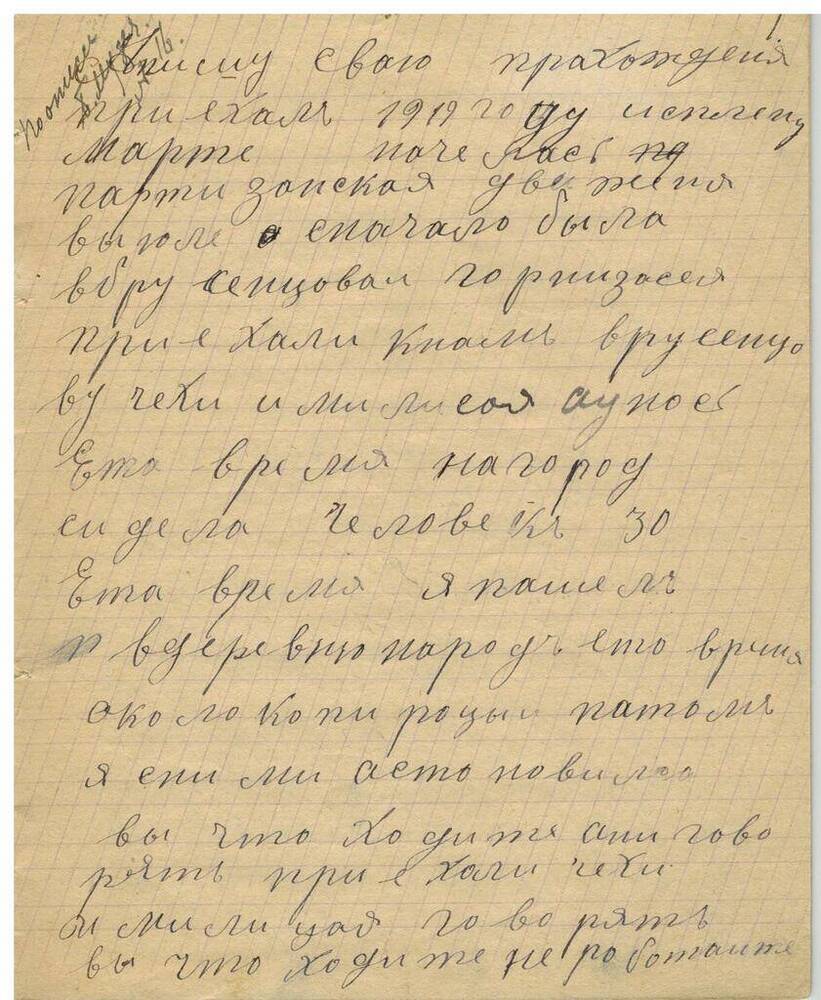 Опишу сваю прахожденiя
приехалъ 1919 году исплену
Марте почелась
партизанская движеня
выюле сначало была
вбрусенцовам горнизасея
приехали кнамъ врусенцо
ву чехи и милисая аунось
Ета время нагород
сидела человекъ 30
Ета время я пашелъ
вдеревню народъ ето время
около копироцыи патомъ
я сними астановилса
вы что ходите ани гово
рятъ приехали чехи
и милицая говорятъ
вы что ходите не работаите